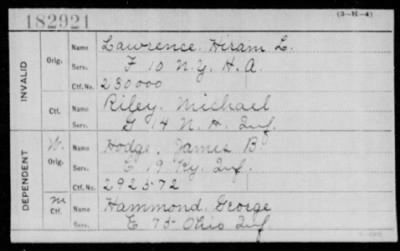 182921
(3-H-4)
INVALID
Orig.
Name Lawrence Hiram L.
Serv. F 10 N.Y. H.A.
Ctf. No. 230000
Ctf.
Name Riley, Michael
Serv. G 14 N.H. Inf.
DEPENDENT
W.
Orig.
Name Hodge, James B
Serv. C 19 Ky. Inf.
Ctf. No. 292572
M
Ctf.
Name Hammond George
Serv. E 75 Ohio Inf.